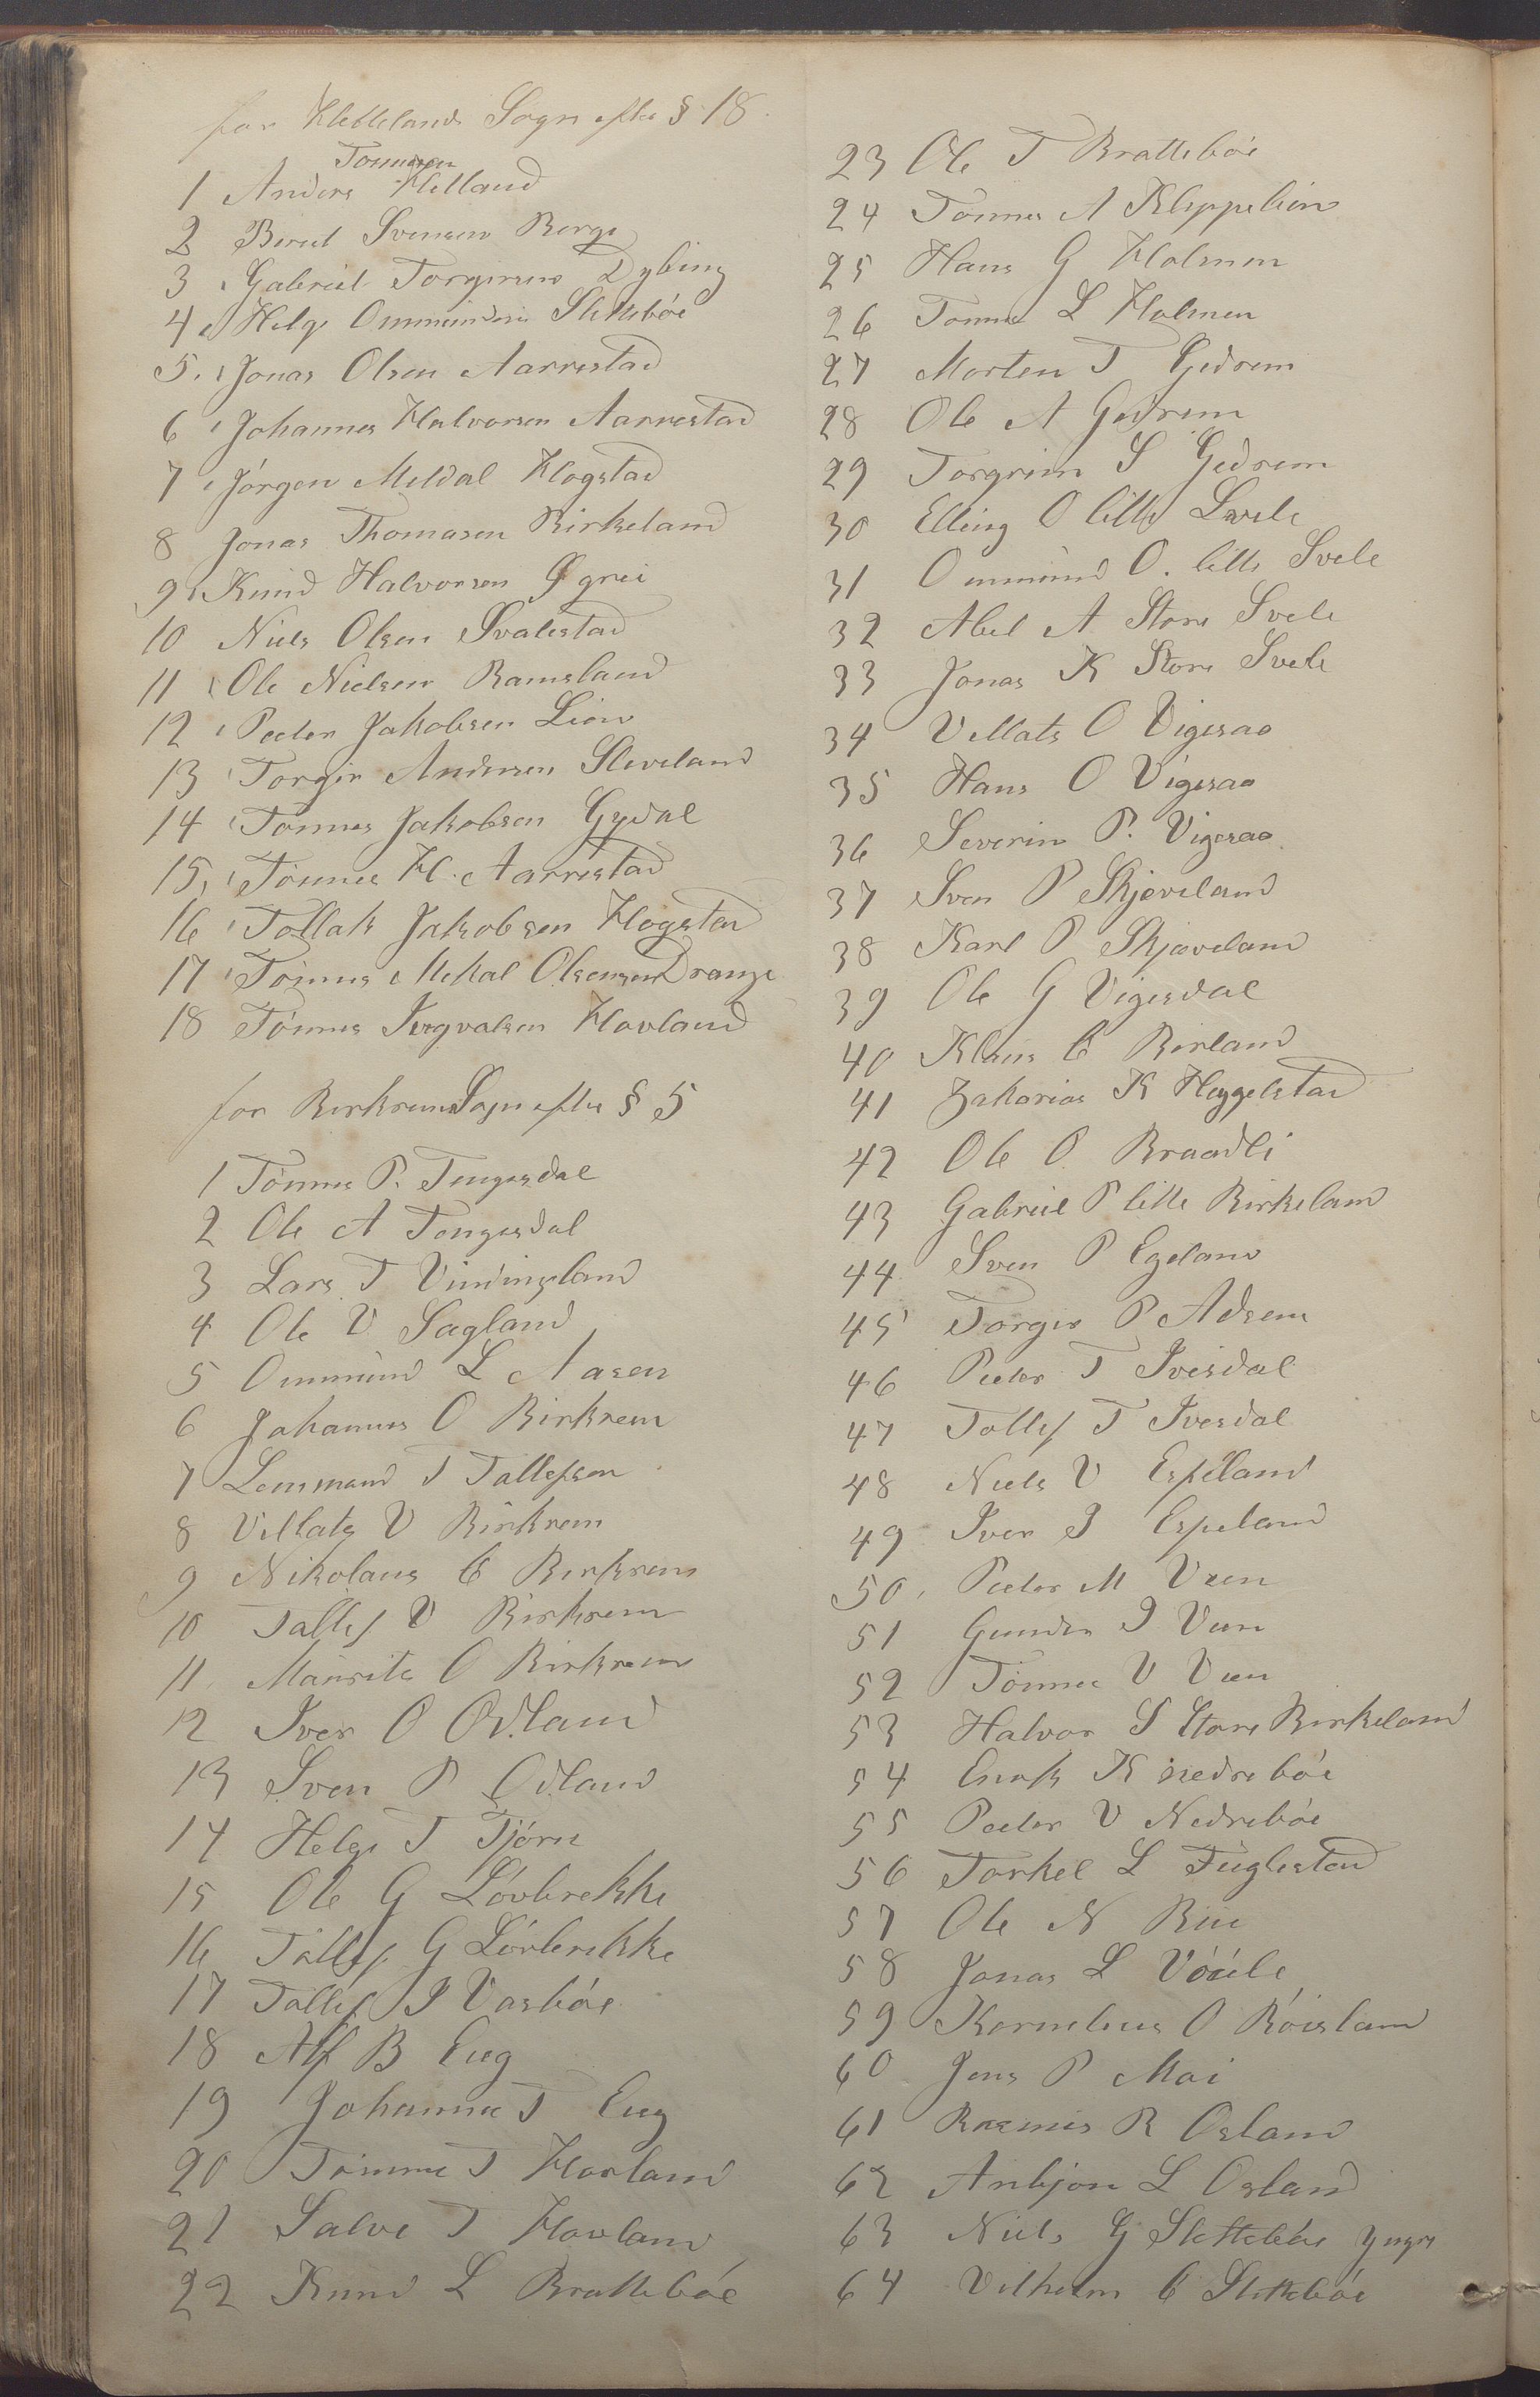 for Hellelands Sogn efter § 18.
Tønnesen
1 Anders Helland
2 Berul Svensen Berge
3 Gabriel Torgersen Dybing
4 Helge Ommundsen Slettebøe
5. Jonas Olsen Aarrestad
6 Johannes Halvorsen Aarrestad
7 Jørgen Meldal Hogstad
8 Jonas Thomasen Birkeland
9 Knud Halvorsen Øgrei
10 Niels Olsen Svalestad
11 Ole Nielsen Ramsland
12 Peder Jakobsen Lien
13 Torger Andersen Sleveland
14 Tønnes Jakobsen Gydal
15, Tønnes H. Aarrestad
16 Tollak Jakobsen Hogstad
17 Tønnes Mekal Olsensen Drange
18 Tønnes Ingvalsen Hovland
for Birkrems Sogn efter § 5
1 Tønnes P. Tengesdal
2 Ole A Tengesdal
3 Lars T Vinningland
4 Ole V Sagland
5 Ommund L Aasen
6 Johannes O Birkrem
7 Lensmand T Tallefsen
8 Villats V Birkrem
9 Nikolaus C Birkrem
10 Tallef V Birkrem
11 Maurits O Birkrem
12 Iver O Odland
13 Sven P Odland
14 Helge T Tjørn
15 Ole G Løvbrekke
16 Tallef G Løvbrekke
17 Tallef I Vasbøe
18 Alf B Eeg
19 Johannes T Eeg
20 Tønnes T Hovland
21 Salve T Hovland
22 Knud L Brattebøe
23 Ole T Brattebøe
24 Tønnes A Kleppelien
25 Hans G Holmen
26 Tønnes L Holmen
27 Morten T Gjedrem
28 Ole A Gjedrem
29 Torgrim S Gjedrem
30 Elling O lille Svele
31 Ommund O. lille Svele
32 Abel A Store Svele
33 Jonas K Store Svele
34 Villats O Vigesaa
35 Hans O Vigesaa
36 Severin P. Vigesaa
37 Sven P Skjæveland
38 Karl P Skjæveland
39 Ole G Vigesdal
40 Klaus C Birland
41 Zakarias K Heggelstad
42 Ole O Braadli
43 Gabriel P lille Birkeland
44 Sven P Egeland
45 Torger P Adsem
46 Peder T Ivesdal
47 Tollef T Ivesdal
48 Niels V Espeland
49 Iver I Espeland
50. Peder M Veen
51 Gunder I Veen
52 Tønnes V Veen
53 Halvor S Store Birkeland
54 Enok K nedrebøe
55 Peder V Nedrebøe
56 Torkel L Fuglestad
57 Ole N Bue
58 Jonas L
59 Kornelius O Røisland
60 Jens P Moi
61 Rasmus R Osland
62 Anbjøn L Osland
63 Niels G Slettebøe yngre
64 Vilhelm C Slettebøe